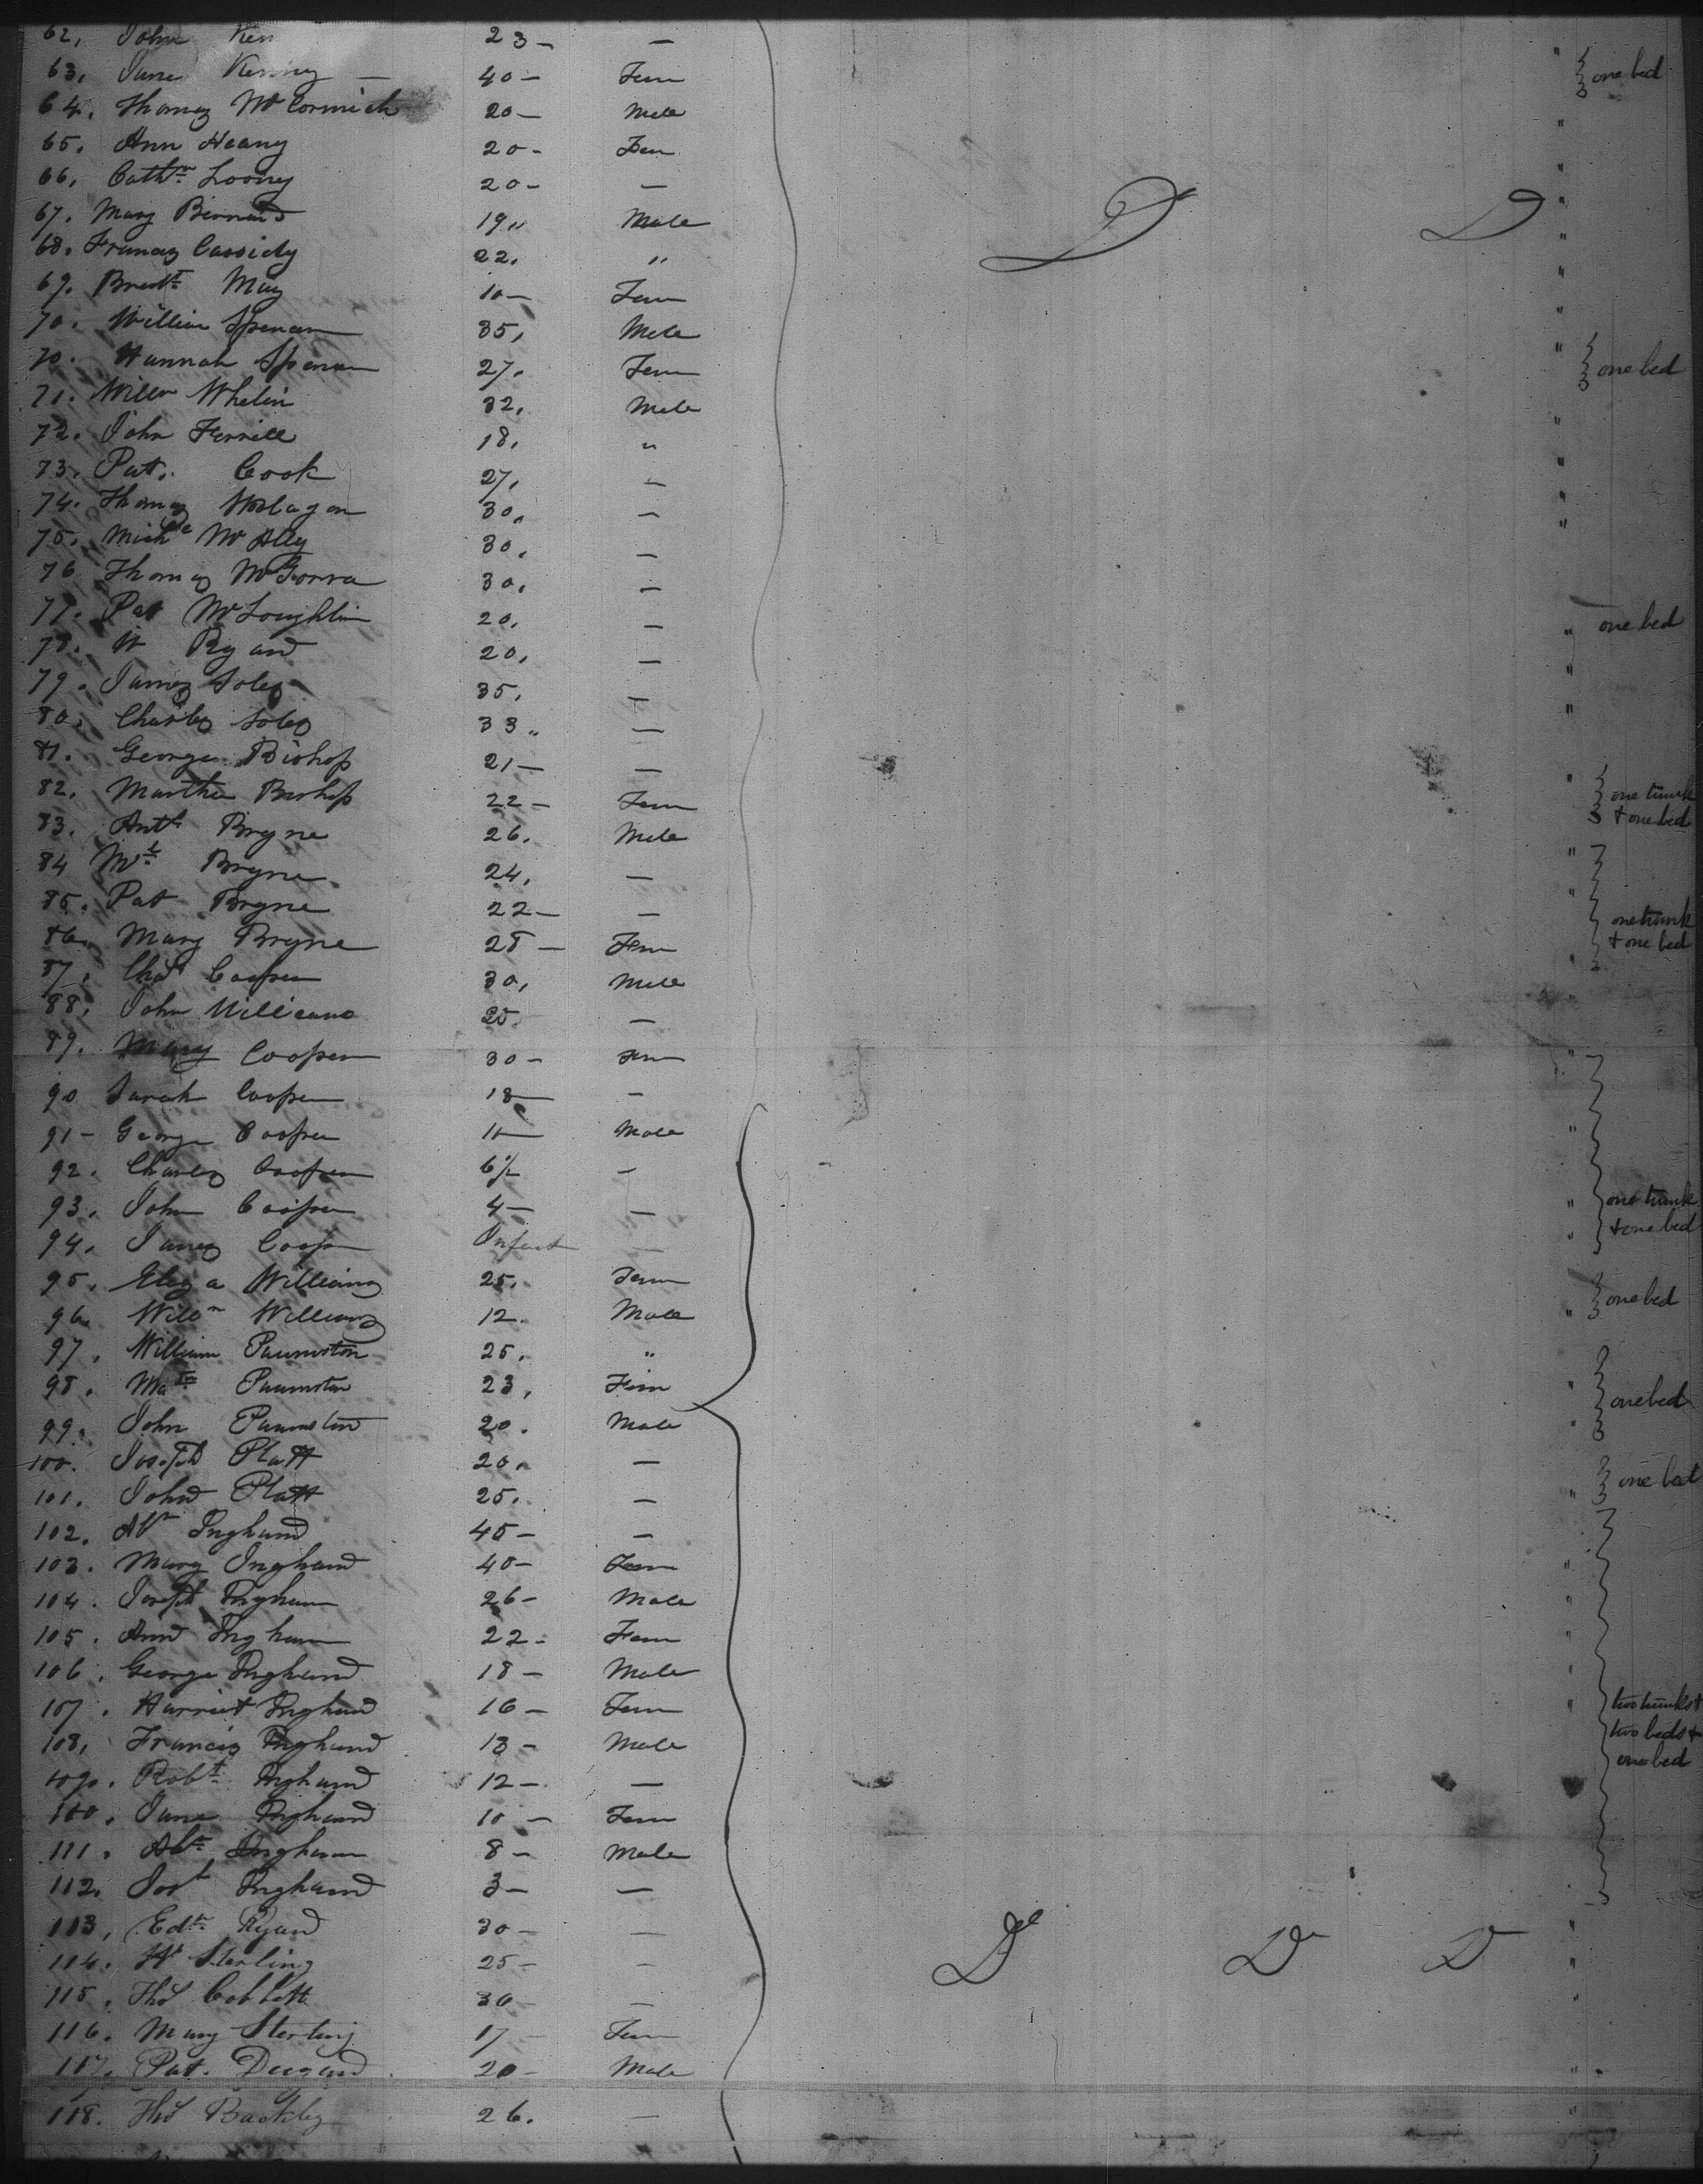 62, John Ken 23 - —
63, Jane Kenny — 40 - Fem " one bed
64. Thomas McCormick 20 - Male "
65. Ann Heany 20 - Fem "
66, Cathn Looney 20 - — "
67. Mary Bernard 19 " Male D D "
68. Francis Cassidy 22. " "
69. Bredt May 10 — Fem "
70. William Spencer 35, Male "
70. Hannah Spencer 27. Fem " one bed
71. Willm Whelin 32, Male
72. John Ferrill 18, " "
73. Pat. Cook 27, — "
74. Thomas 30, — "
75. Michl McAlly 30, — "
76 Thomas 30, —
77. Pat McLoughlin 20, — " one bed
78. W Ryand 20, — "
79. James Soley 35, — "
80. Charles Soley 33 " — "
81. George Bishop 21 — —
82. Martha Bishop 22 - Fem " one trunk & one bed
83. Anth Bryne 26. Male
84 Mt Bryne 24, — "
85. Pat Bryne 22 — — "
86. Mary Bryne 28 — Fem one trunk & one bed
87. Chas Cooper 30, Male
88. John Williams 25. — "
89. Mary Cooper 30 - Fem "
90 Sarah Cooper 18 — -
91 - George Cooper 11 — Male "
92. Charles Cooper 6½ —
93. John Cooper 4 — — " one trunk & one bed
94. James Coop Infant — "
95. Eliza Williams 25. Fem
96. Willm Williams 12. Male " one bed
97. William 25. "
98. 23, Fem " one bed
99. John 20. Male "
100. Joseph Platt 20. —
101. John Platt 25. — " one bed
102. Abm Inghand 45 - —
103. Mary Inghand 40 - Fem "
104. Joseph Ingham 26 - Male "
105. Ann Ingham 22 - Fem "
106. George Inghand 18 - Male "
107. Harriet Inghand 16 - Fem " two trunks &
108, Francis Inghand 13 - Male two beds &
109. Robt Inghand 12 - — one bed
110. Jane Inghand 10 - Fem
111. Abm Ingham 8 - Male
112. Inghand 3 - —
113, Edt Ryand 30 - — Do Do Do "
114. W Sterling 25 - — "
115. Ths Cobbett 30 - — "
116. Mary Sterling 17 - Fem
117. Pat. Dugand 20 - Male "
118. Ths Backley 26. — "